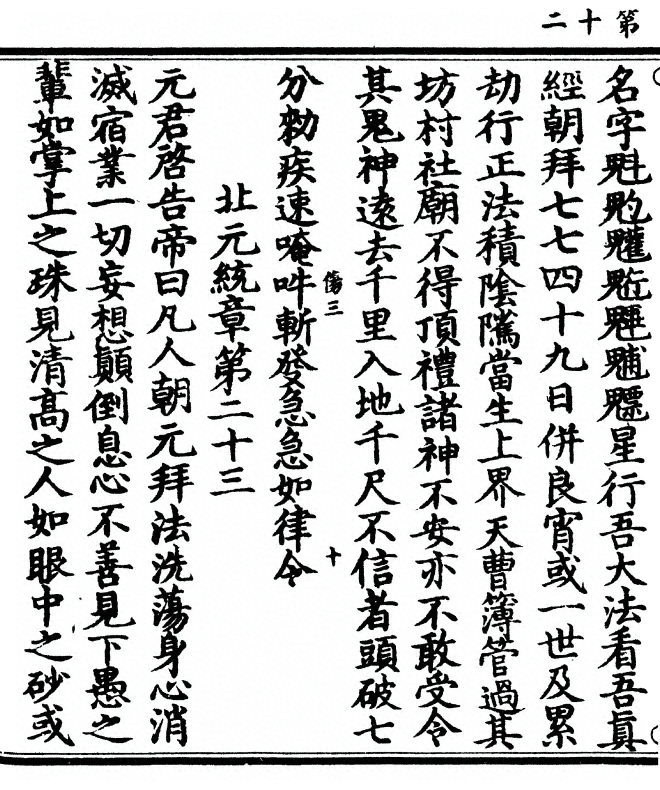 第十二
名字魁𩲃䰢魒魓䰟魒星行吾大法看吾眞
經朝拜七七四十九日併良宵或一世及累
劫行正法積陰隲當生上界天曹簿管過其
坊村社廟不得頂禮諸神不安亦不敢受令
其鬼神遠去千里入地千尺不信者頭破七
傷三 十
分勑疾速唵吽斬發急急如律令
北元統章第二十三
元君啓告帝曰凡人朝元拜法洗蕩身心消
滅宿業一切妄想顛倒息心不善見下愚之
輩如掌上之珠見清高之人如眼中之砂或